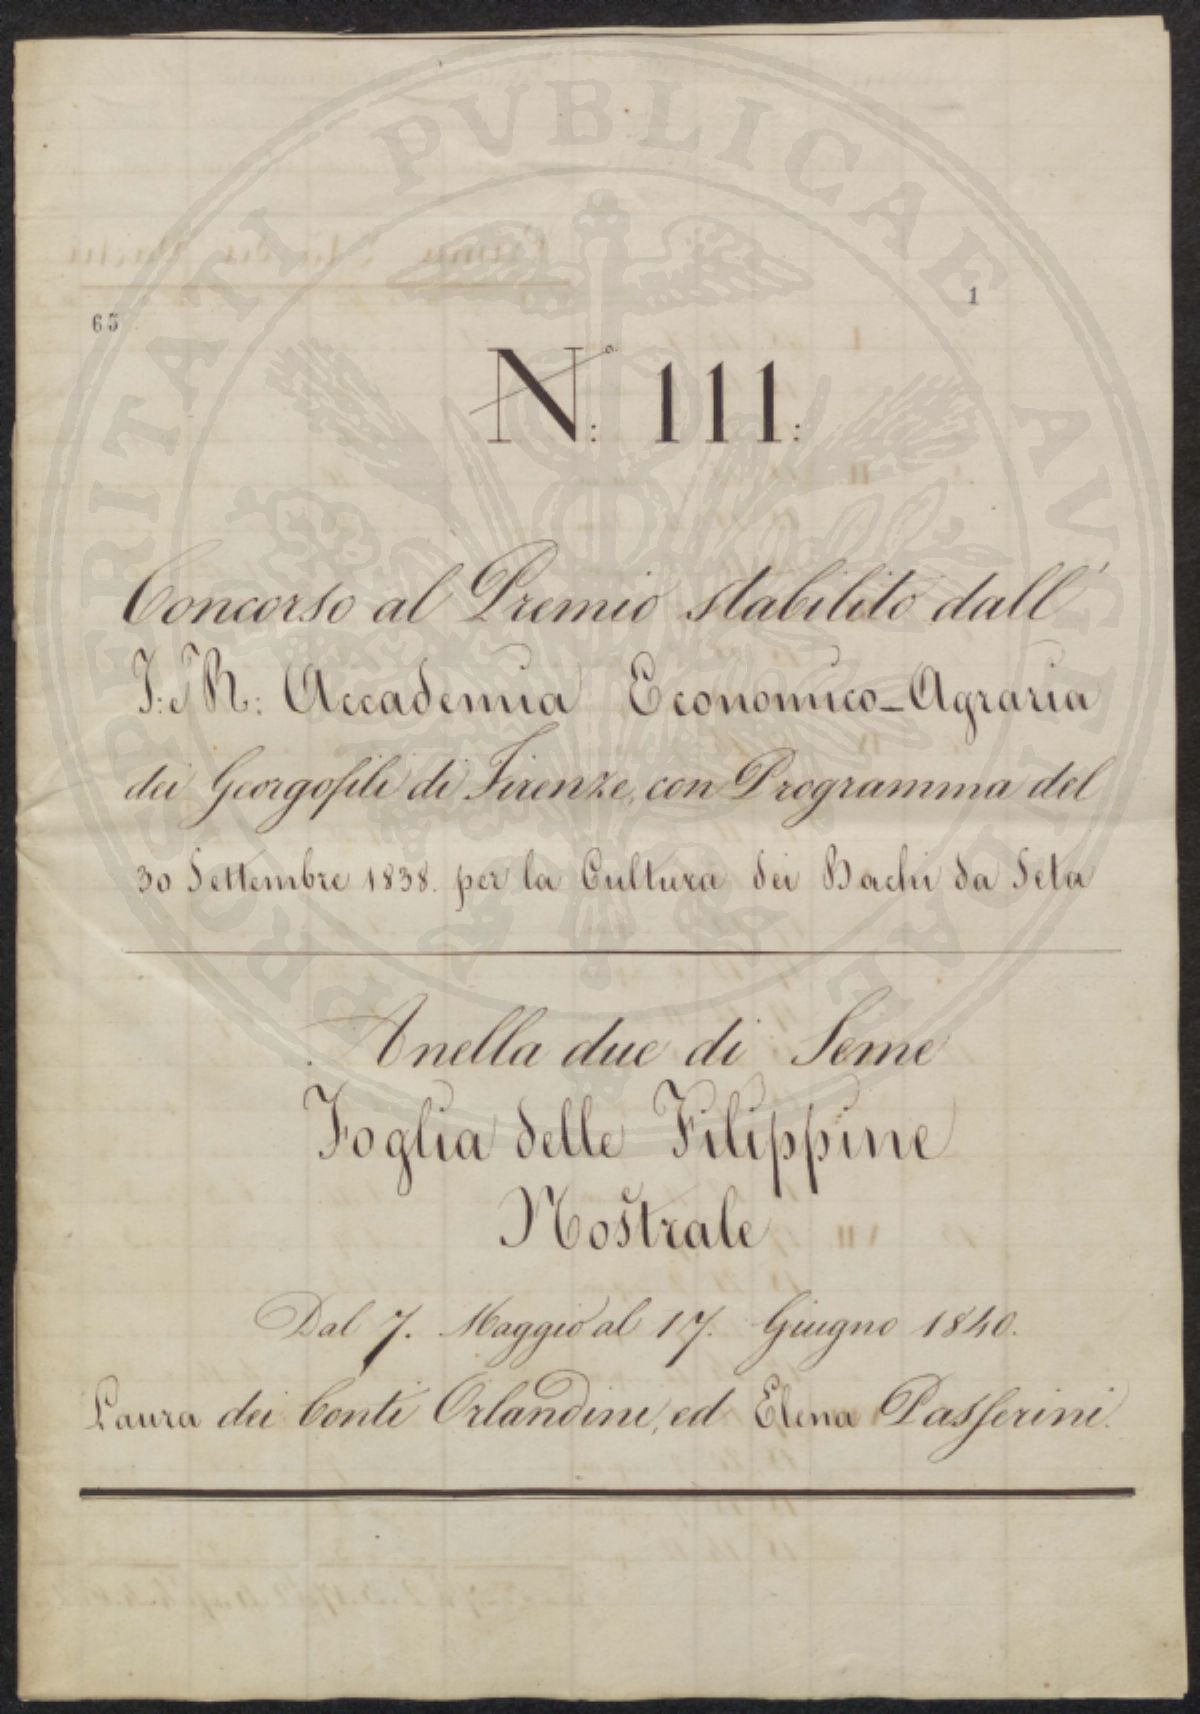 PROSPERITATI PVBLICAE AVGENDAE
65
1
N.º: 111:
Concorso al Premio stabilito dall'
I: R: Accademia Economico-Agraria
dei Georgofili di Firenze, con Programma del
30 Settembre 1838. per la Cultura dei Bachi da Seta
Anella due di Seme
Foglia delle Filippine
Nostrale
Dal 7. Maggio al 17. Giugno 1840.
Laura dei Conti Orlandini, ed Elena Passerini.